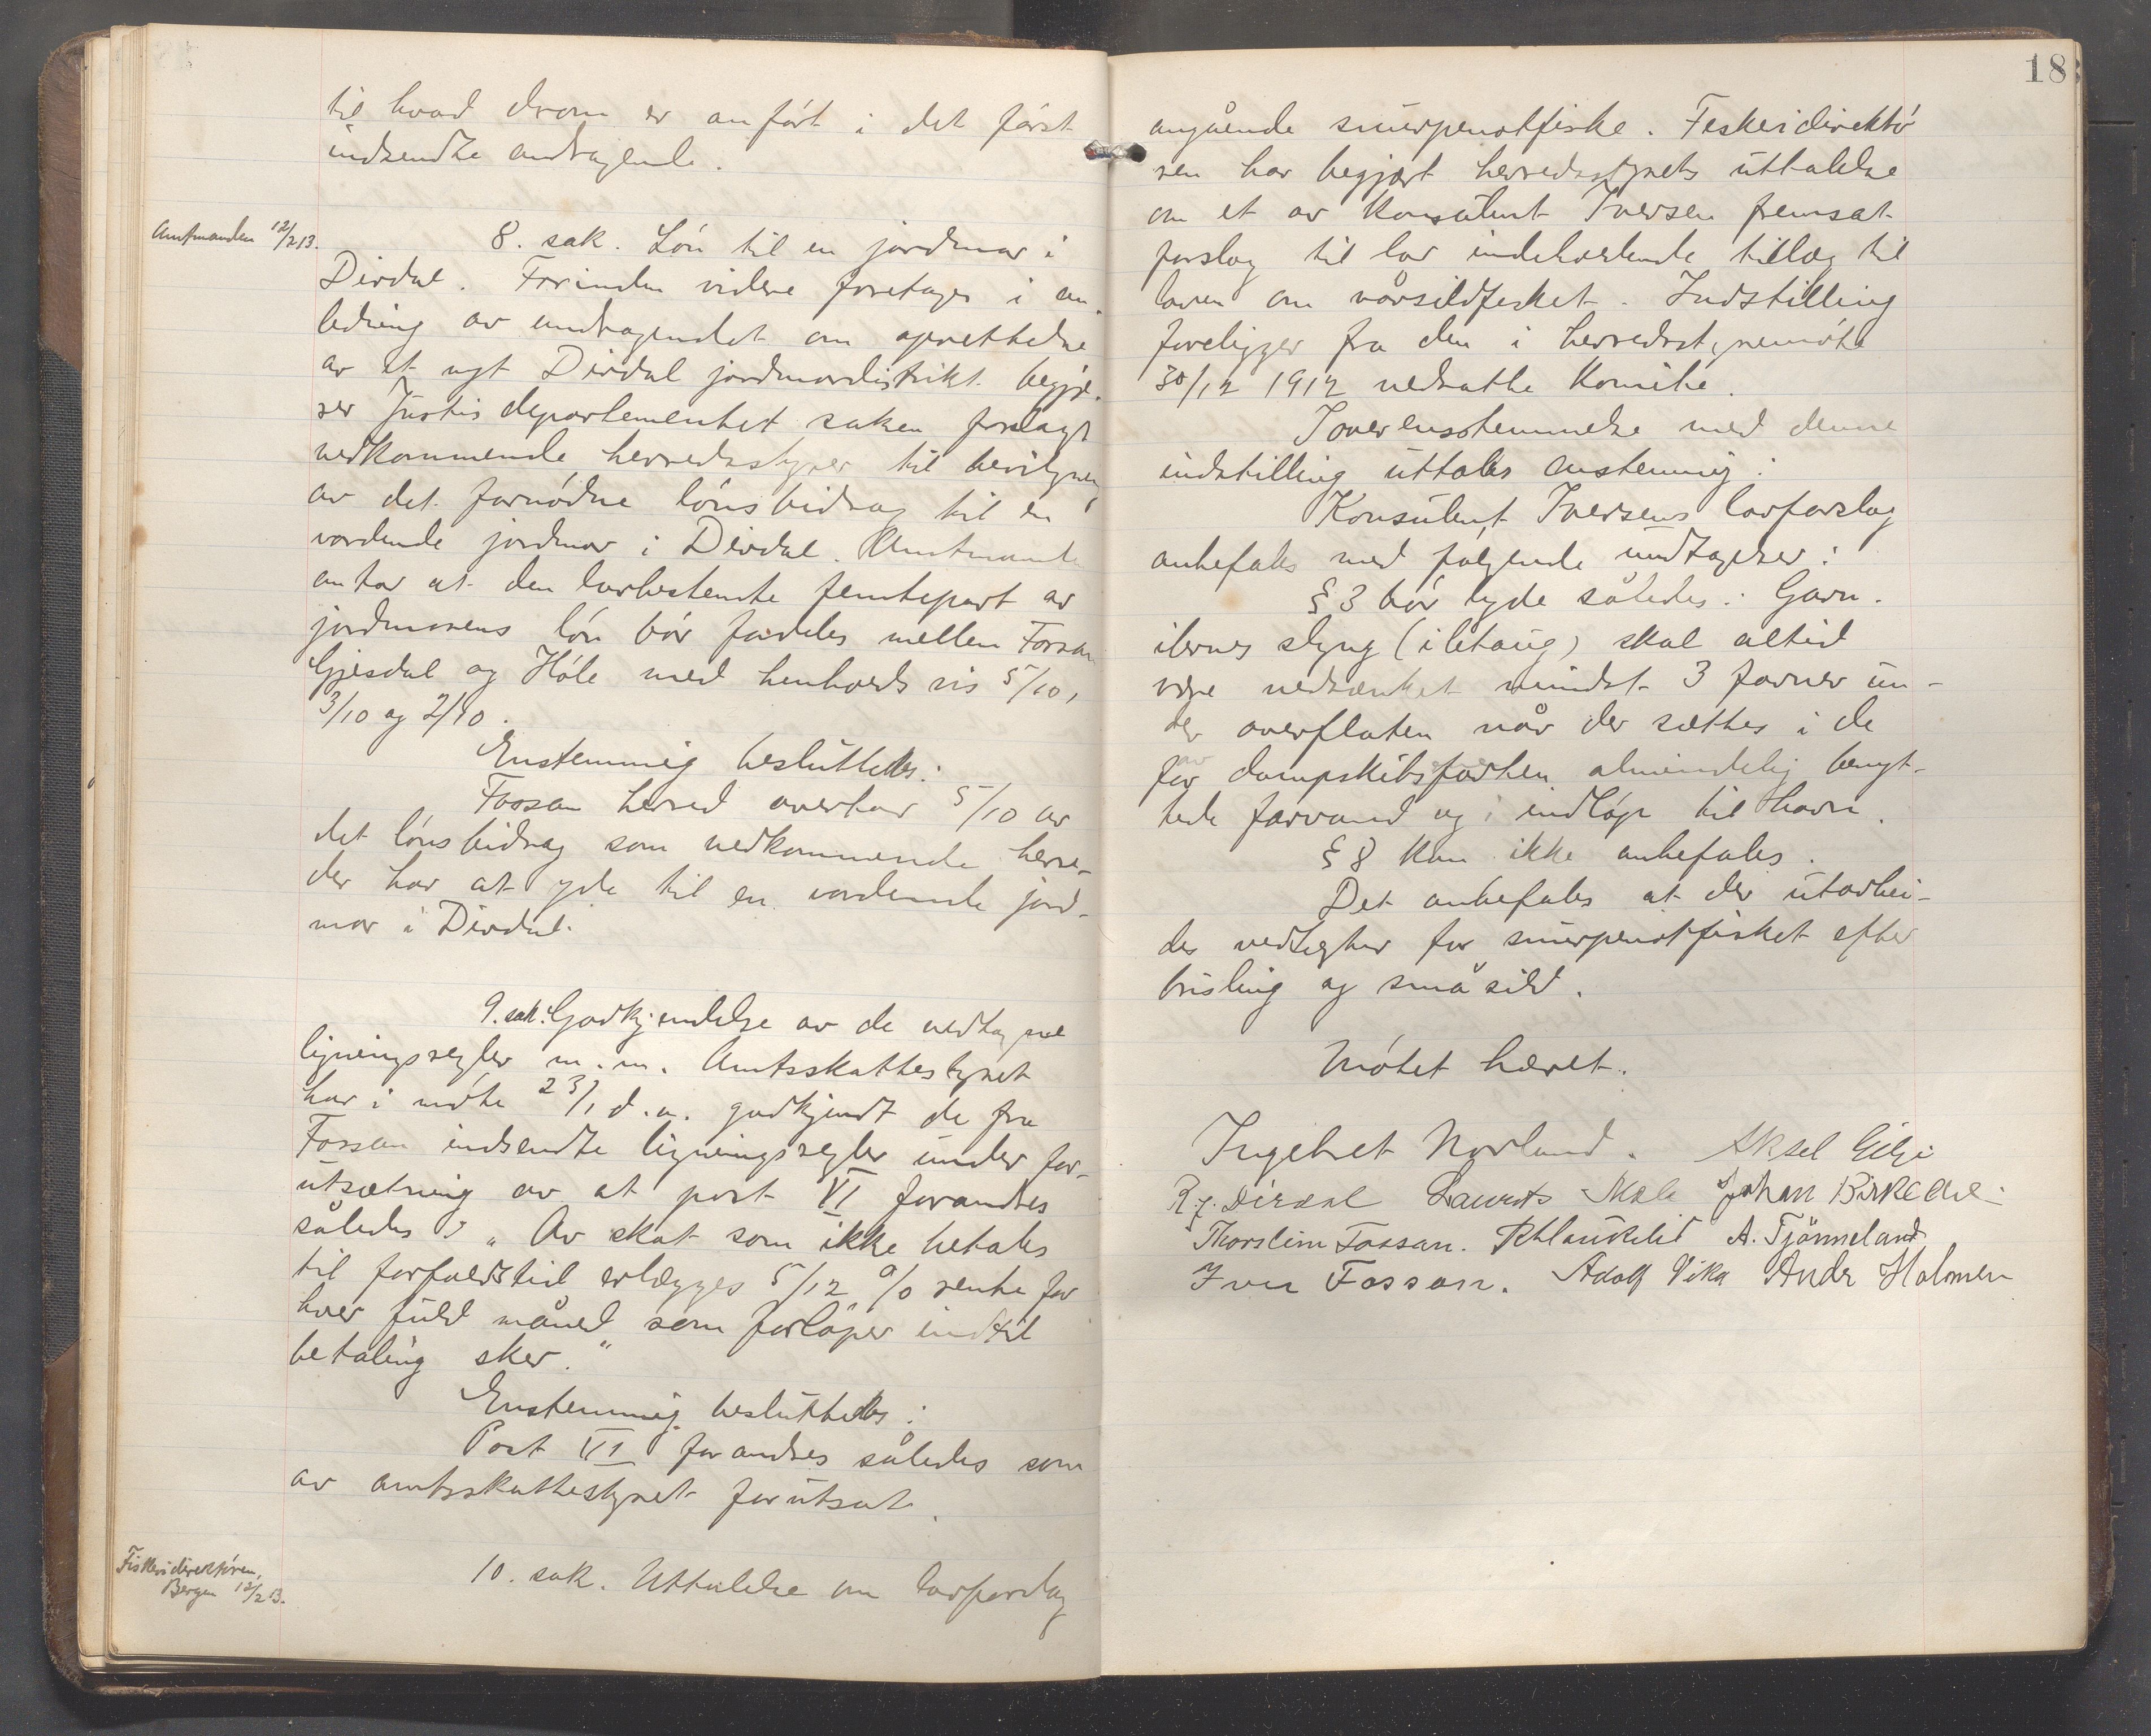 til hvad drom er anført i det først
indsendte andragende.
Amtmanden 12/2 13.
8. sak. Løn til en jordmor i
Dirdal. Forinden videre foretages i an-
ledning av andragendet om oprettelse
av et nyt Dirdal jordmordistrikt begjæ-
rer Justisdepartementet saken forelagt
vedkommende herredsstyrer til bevilgning
av det fornødne lønsbidrag til en
vordende jordmor i Dirdal. Amtmanden
antar at den lovbestemte femtepart av
jordmorens løn bør fordeles mellem Forsan
Gjesdal og Høle med henholdsvis 5/10,
3/10 og 2/10.
Enstemmig besluttedes:
Fossan herred overtar 5/10 av
det lønsbidrag som vedkommende herre-
der har at yde til en vordende jord-
mor i Dirdal.
9. sak. Godkjendelse av de vedtagne
ligningsregler m.m. Amtsskattestyret
har i møte 23/1 d.a. godkjendt de fra
Fossan indsendte ligningsregler under for-
utsætning av at post VI forandres
således: "Av skat som ikke betales
til forfaldstid erlægges 5/12 % rente for
hver fuld måned som forløper indtil
betaling sker."
Enstemmig besluttedes:
Post VI forandres således som
av amtsskattestyret forutsat.
Fiskeridirektøren,
Bergen 12/2 13.
10. sak. Uttalelse om lovforslag
18
angående snurpenotfiske. Fiskeridirektø
ren har begjært herredsstyrets uttalelse
om et av konsulent Iversen fremsat
forslag til lov indeholdende tillæg til
loven om vårsildfisket. Indstilling
foreligger fra den i herredsstyremøte
30/12 1912 nedsatte komite.
I overensstemmelse med denne
indstilling uttales enstemmig:
Konsulent Iversens lovforslag
anbefales med følgende undtagelser:
§ 3 bør lyde således: Garn-
ilernes slyng (iletaug) skal altid
være nedsænket mindst 3 favner un-
der overflaten når der sættes i de
for dampskibsfarten almindelig benyt-
tede farvand og i indløp til havn.
§ 8 kan ikke anbefales.
Det anbefales at der utarbei-
des vedtægter for snurpenotfisket efter
brisling og småsild.
Møtet hævet.
Ingebret Norland. Aksel Eilje
R. J. Dirdal Laurits Mæle Johan Birkedal
Thorstein Fossan. A. Tjønneland
Iver Fossan. Adolf Vika Andr Holmen